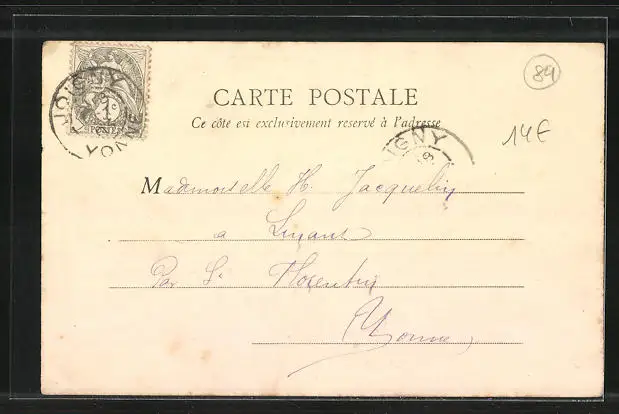 JOIGNY
YONNE
1c
POSTES
89
CARTE POSTALE
Ce côté est exclusivement reservé à l'adresse
14€
IGNY
Mademoiselle H. Jacquelin
a
Par St Florentin
Yonne